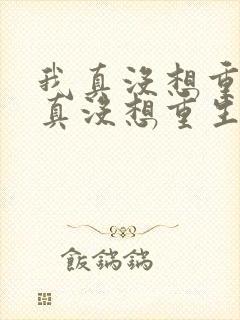 我真沒想重
真沒想重生
飯鍋鍋